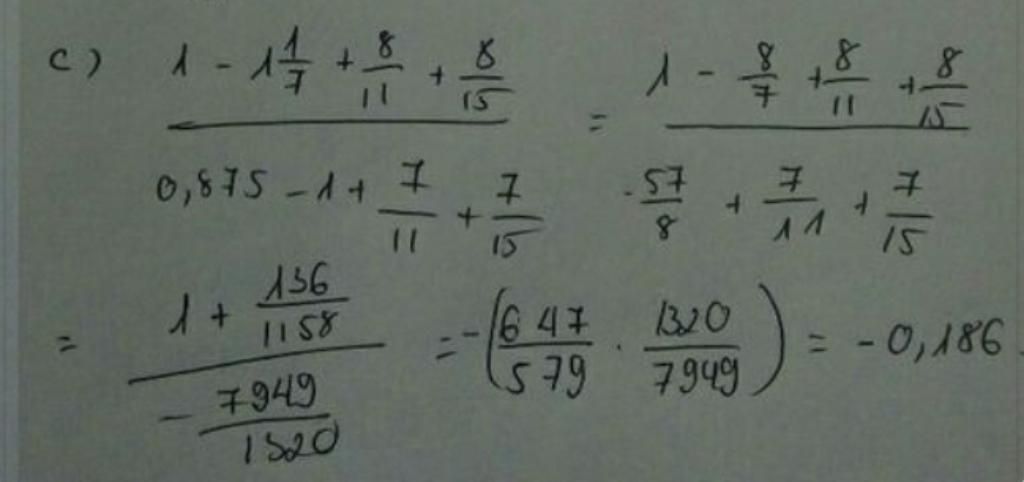 c) (1 - 1 1/7 + 8/11 + 8/15) / (0,875 - 1 + 7/11 + 7/15) = (1 - 8/7 + 8/11 + 8/15) / (-57/8 + 7/11 + 7/15)
= (1 + 136/1158) / (- 7949/1320) = -(647/579 · 1320/7949) = -0,186